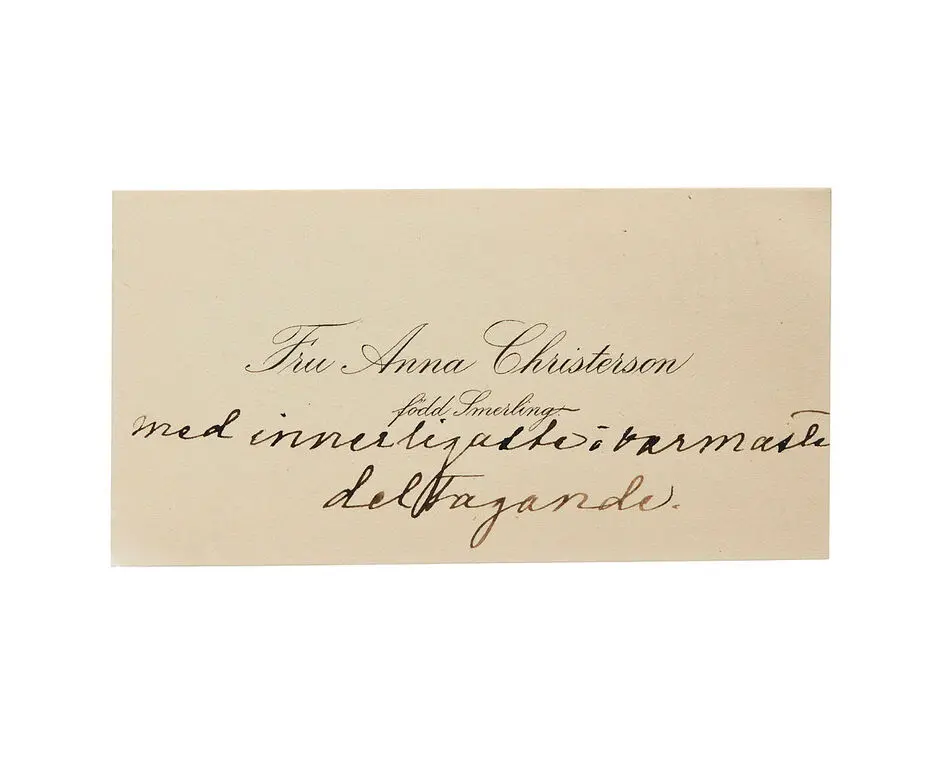 Fru Anna Christerson
född Smerling
med innerligaste i varmaste
deltagande.